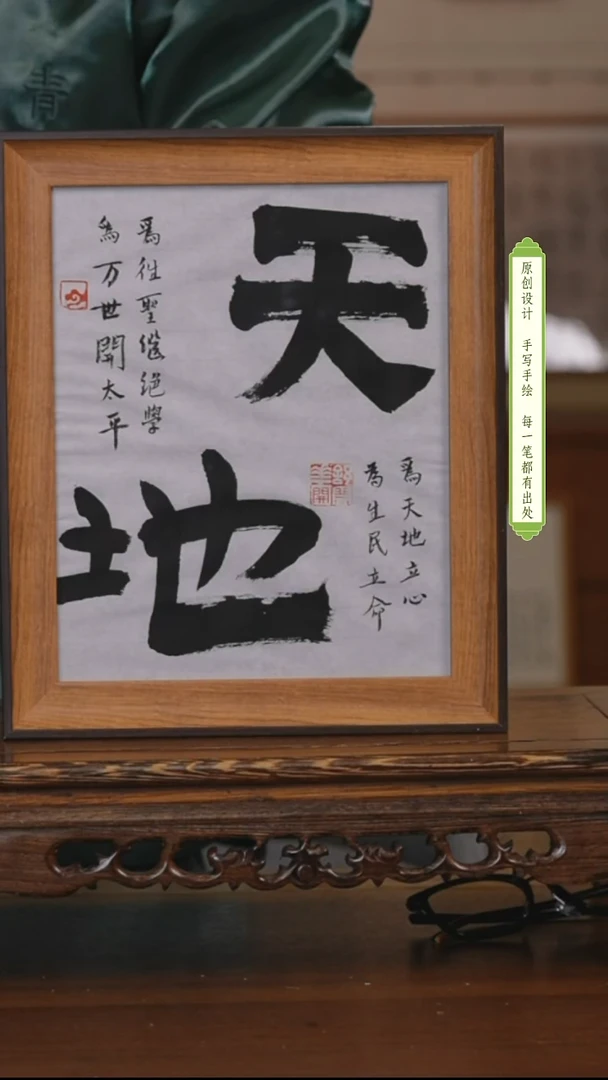 青
天
地
爲天地立心
為生民立命
爲往聖繼絕學
爲万世開太平
原创设计 手写手绘 每一笔都有出处